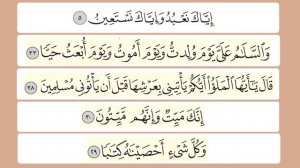 إِيَّاكَ نَعْبُدُ وَإِيَّاكَ نَسْتَعِينُ ٥
وَٱلسَّلَٰمُ عَلَىَّ يَوْمَ وُلِدتُّ وَيَوْمَ أَمُوتُ وَيَوْمَ أُبْعَثُ حَيًّا ٣٣
قَالَ يَٰٓأَيُّهَا ٱلْمَلَؤُا۟ أَيُّكُمْ يَأْتِينِى بِعَرْشِهَا قَبْلَ أَن يَأْتُونِى مُسْلِمِينَ ٣٨
إِنَّكَ مَيِّتٌ وَإِنَّهُم مَّيِّتُونَ ٣٠
وَكُلَّ شَىْءٍ أَحْصَيْنَٰهُ كِتَٰبًا ٢٩